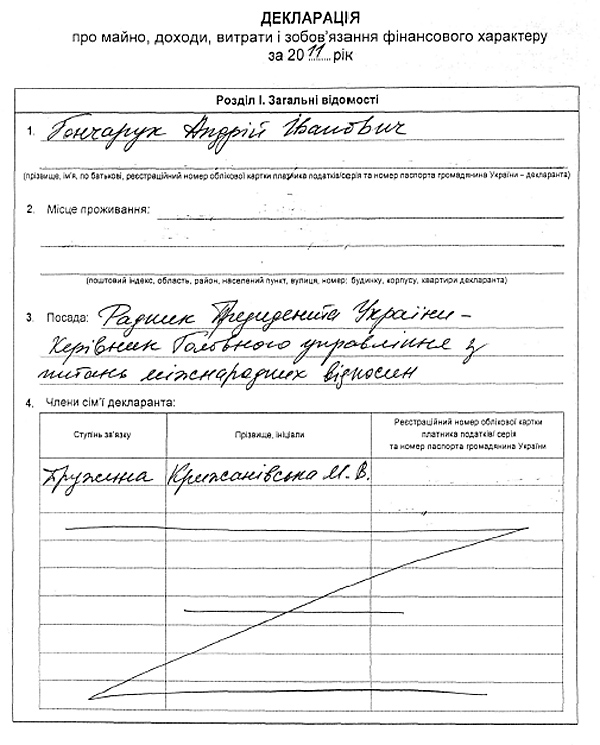 ДЕКЛАРАЦІЯ
про майно, доходи, витрати і зобов'язання фінансового характеру
за 2011 рік
Розділ I. Загальні відомості
1. Гончарук Андрій Іванович
(прізвище, ім'я, по батькові, реєстраційний номер облікової картки платника податків/серія та номер паспорта громадянина України – декларанта)
2. Місце проживання:
(поштовий індекс, область, район, населений пункт, вулиця, номер: будинку, корпусу, квартири декларанта)
3. Посада: Радник Президента України –
Керівник Головного управління з
питань міжнародних відносин
4. Члени сім'ї декларанта:
Ступінь зв'язку
Прізвище, ініціали
Реєстраційний номер облікової картки
платника податків/ серія
та номер паспорта громадянина України
Дружина Крижанівська М. В.